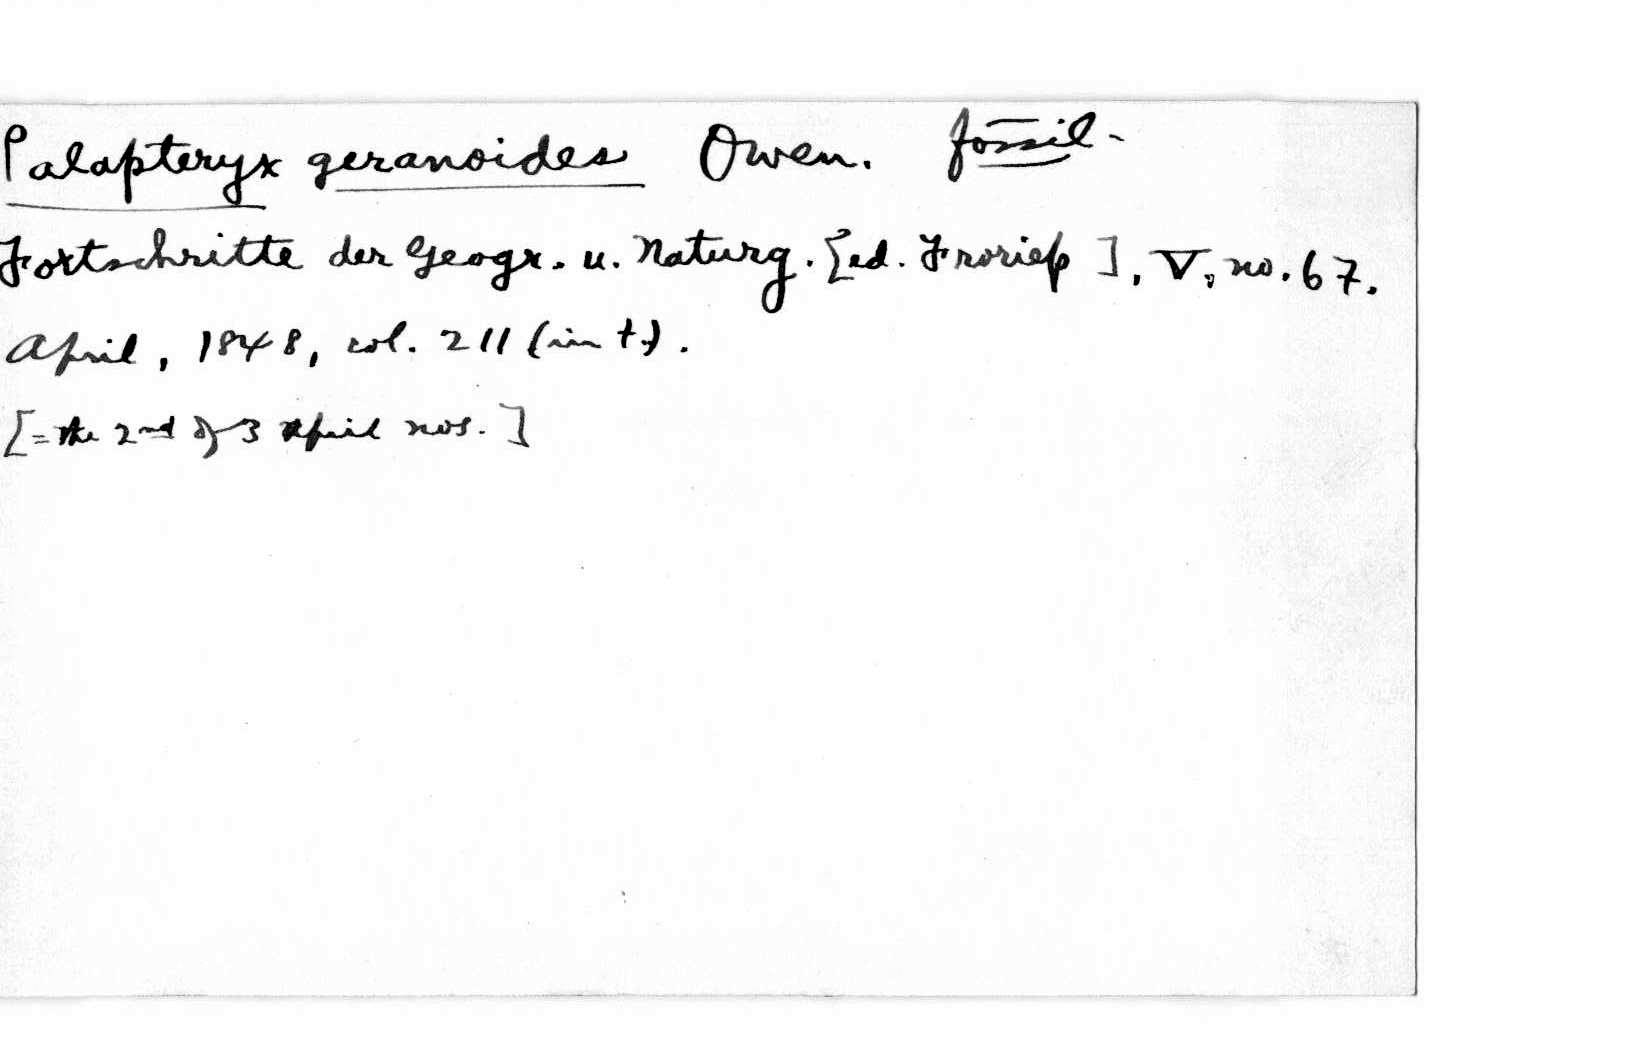 Palapteryx geranoides Owen. fossil-
Fortschritte der Geogr. u. Naturg. [ed. Froriep], V, no. 67.
April, 1848, col. 211 (in t.).
[= the 2nd of 3 April nos.]